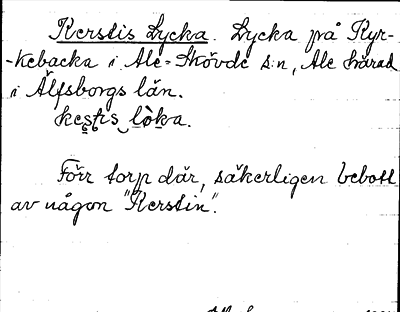 Kerstis Lycka. Lycka på Kyr-
-kebacka i Ale-Skövde s:n, Ale härad
i Älfsborgs län.
Förr torp där, säkerligen bebott
av någon "Kerstin".